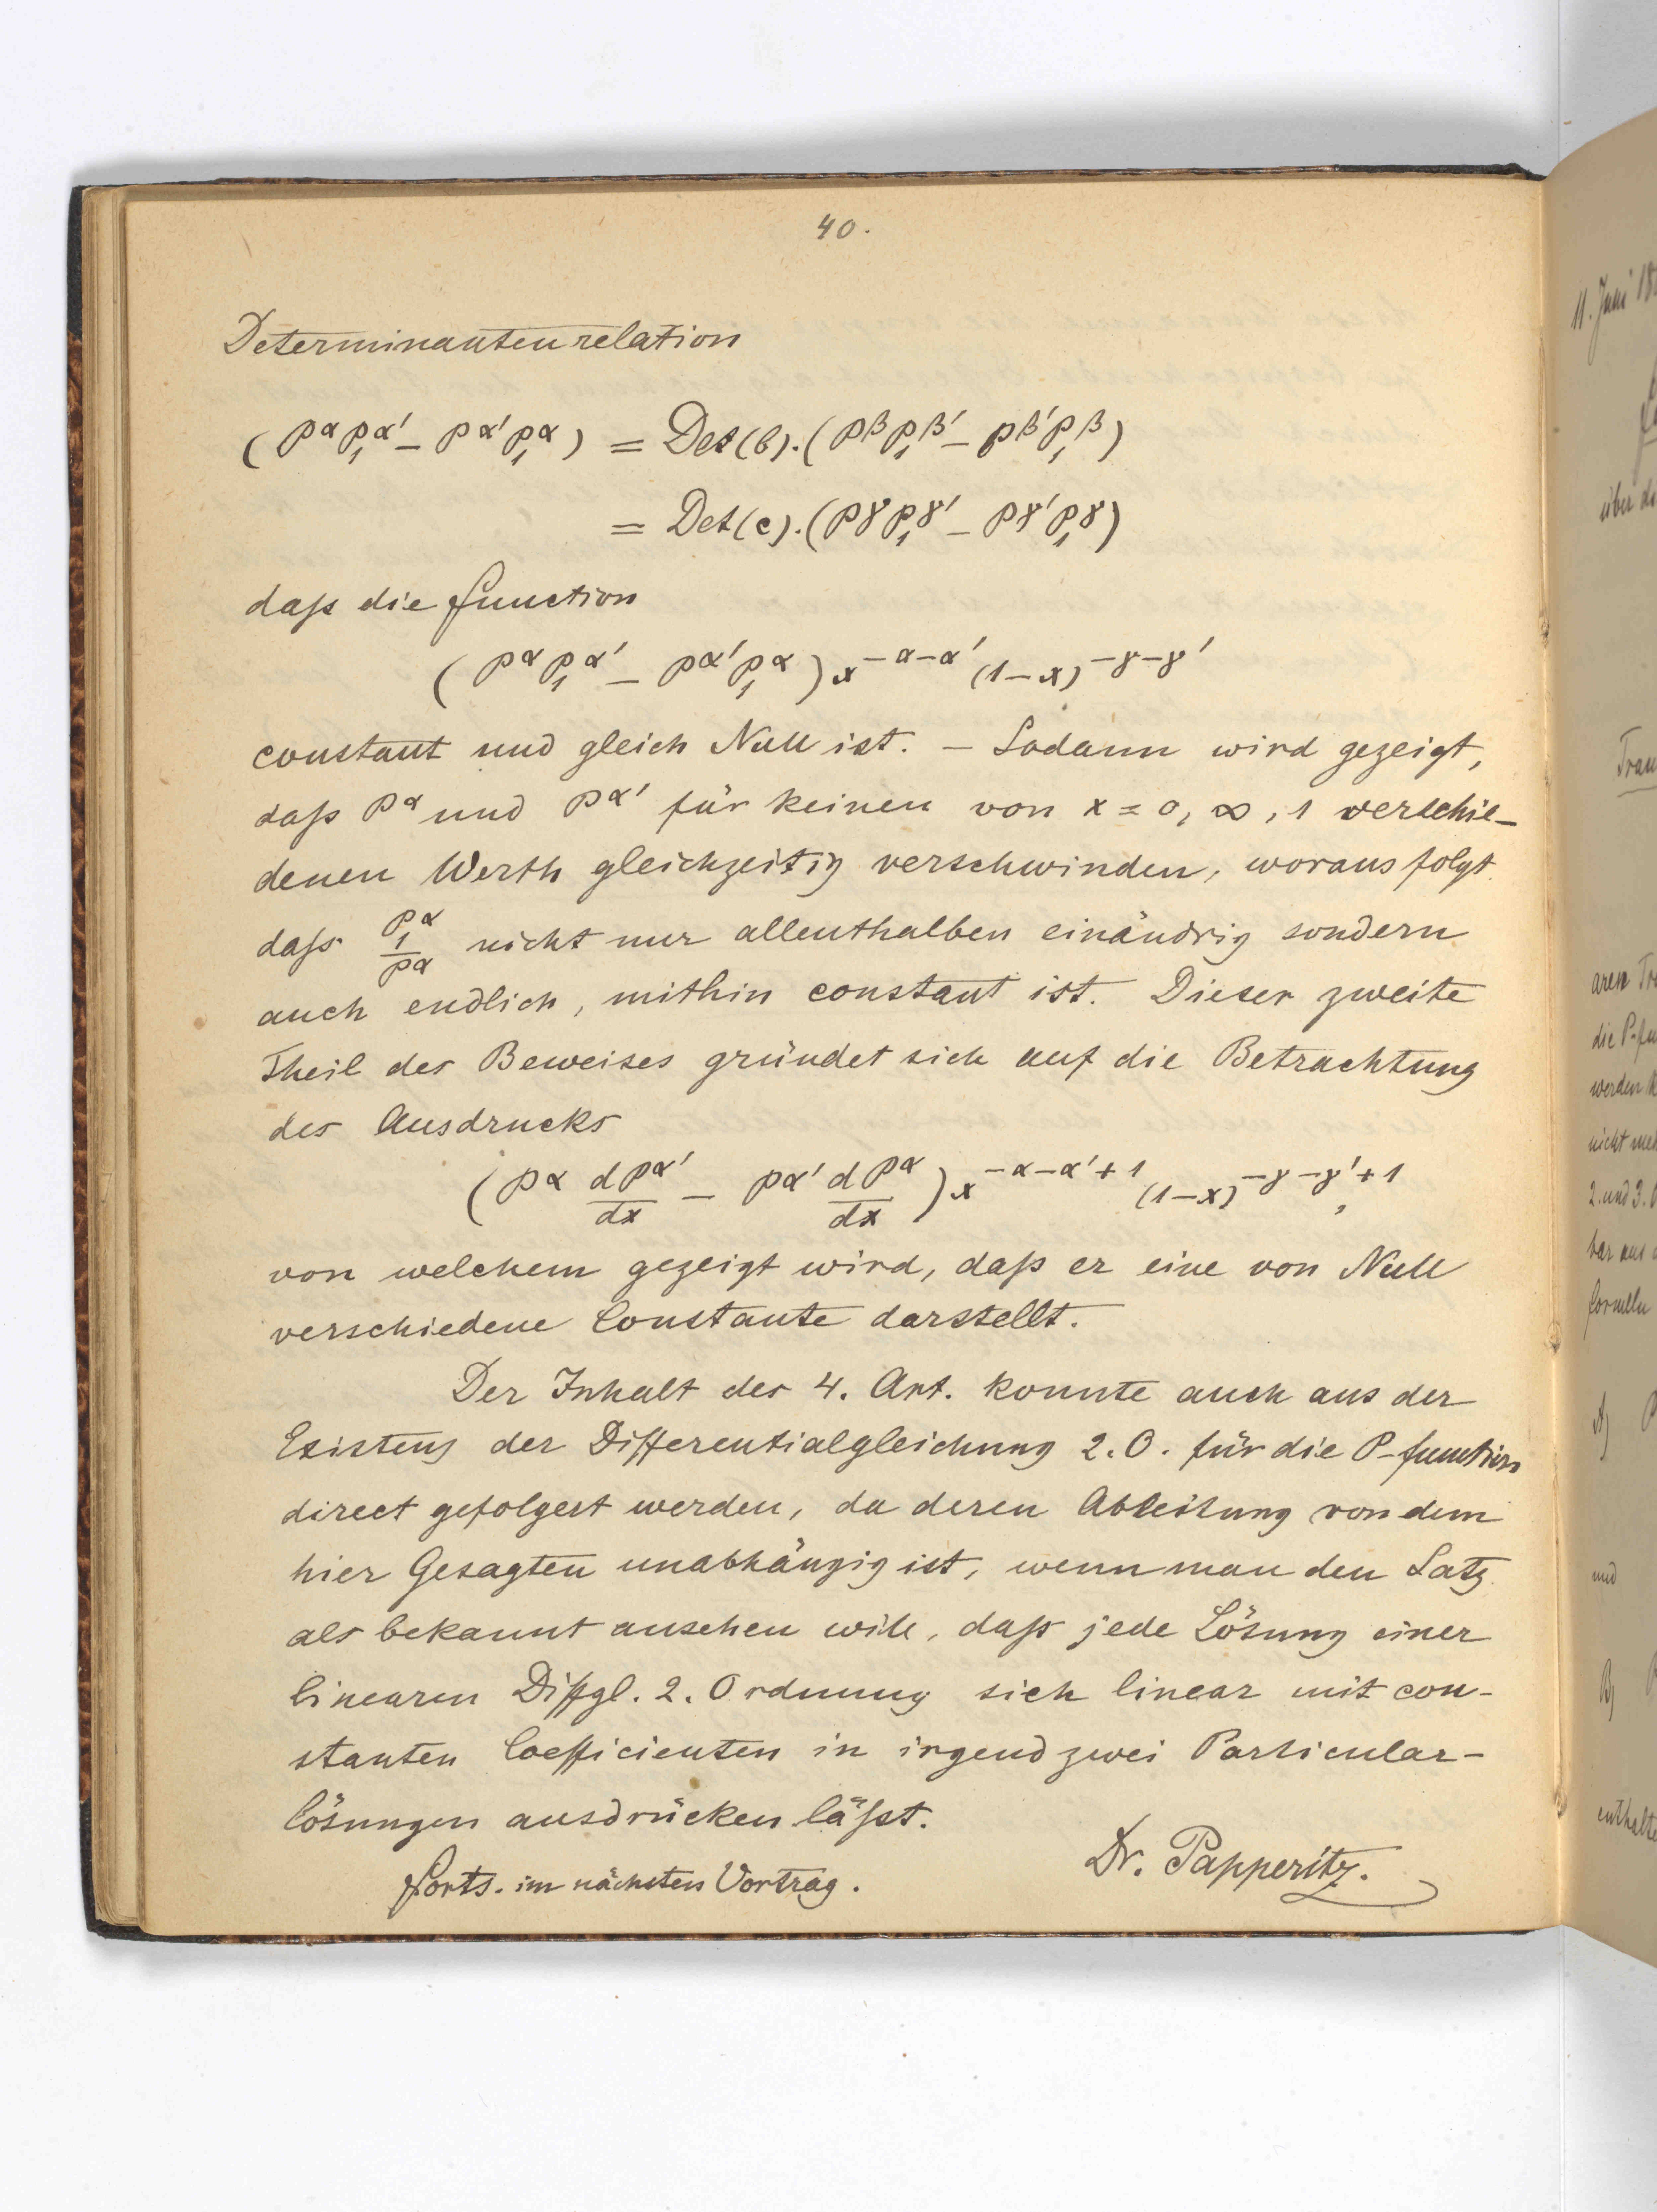 40.
Determinantenrelation
(P^α P₁^α′ − P^α′ P₁^α) = Det(b).(P^β P₁^β′ − P^β′ P₁^β)
= Det(c).(P^γ P₁^γ′ − P^γ′ P₁^γ)
daß die Function
(P^α P₁^α′ − P^α′ P₁^α) x^−α−α′ (1−x)^−γ−γ′
constant und gleich Null ist. – Sodann wird gezeigt,
daß P^α und P^α′ für keinen von x = 0, ∞, 1 verschie-
denen Werth gleichzeitig verschwinden, woraus folgt
daß P₁^α/P^α nicht nur allenthalben einändrig sondern
auch endlich, mithin constant ist. Dieser zweite
Theil des Beweises gründet sich auf die Betrachtung
des Ausdrucks
(P^α dP^α′/dx − P^α′ dP^α/dx) x^−α−α′+1 (1−x)^−γ−γ′+1,
von welchem gezeigt wird, daß er eine von Null
verschiedene Constante darstellt.
Der Inhalt des 4. Art. konnte auch aus der
Existenz der Differentialgleichung 2.O. für die P-function
direct gefolgert werden, da deren Ableitung von dem
hier Gesagten unabhängig ist, wenn man den Satz
als bekannt ansehen will, daß jede Lösung einer
linearen Diffgl. 2. Ordnung sich linear mit con-
stanten Coefficienten in irgend zwei Particular-
lösungen ausdrücken läßt.
Forts. im nächsten Vortrag.
Dr. Papperitz.
11. Juni 18
über d
aren Tr
die P-fu
werden k
nicht me
2. und 3. O
bar aus
formeln
A)
und
B)
enthalte